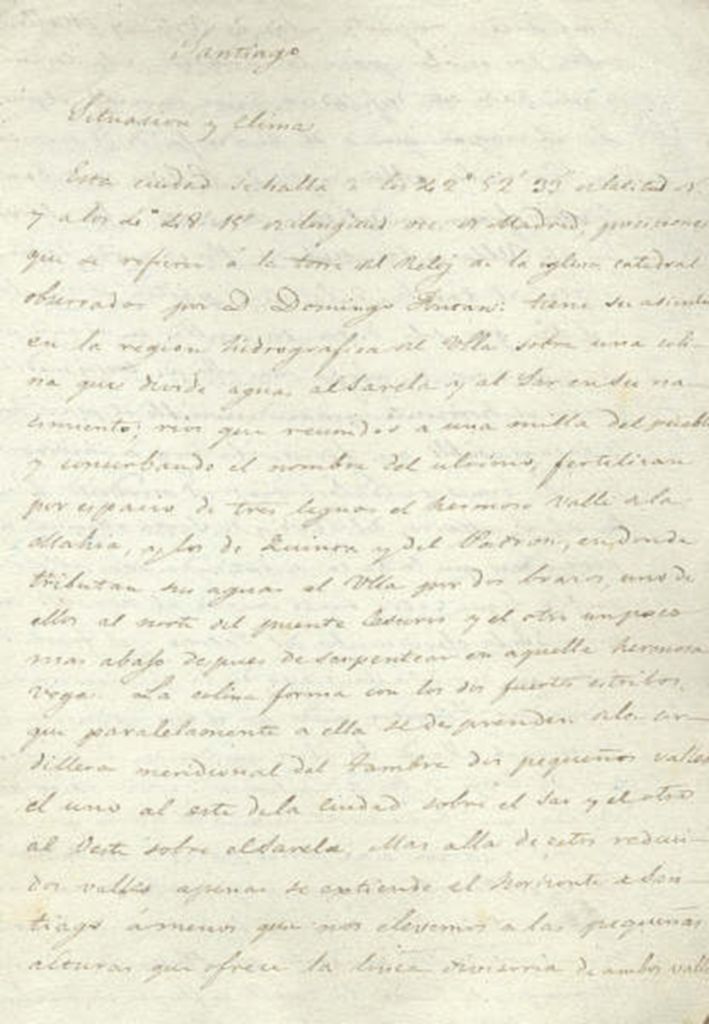 Santiago
Situacion y clima
Esta ciudad se halla a los 42° 52' 33" de latitud N.
y a los 4° 48' 15" de longitud occ. de Madrid, posiciones
que se refieren á la torre del Reloj de la iglesia catedral
observadas por D. Domingo Fontan: tiene su asiento
en la region hidrografica del Ulla sobre una coli-
na que divide aguas al Sarela y al Sar en su na-
cimiento; rios que reunidos a una milla del pueblo
y conserbando el nombre del ultimo, fertilizan
por espacio de tres leguas el hermoso valle de la
Mahia, y los de Quinza y del Padron, en donde
tributan sus aguas al Ulla por dos brazos, uno de
ellos al norte del puente Cesures y el otro un poco
mas abajo despues de serpentear en aquella hermosa
vega. La colina forma con los dos fuertes estribos,
que paralelamente a ella se desprenden de la cor-
dillera meridional del Tambre dos pequeños valles
el uno al este de la ciudad sobre el Sar y el otro
al Oeste sobre el Sarela. Mas alla de estos reduci-
dos valles apenas se extiende el horizonte de San-
tiago ámenos que nos elevemos a las pequeñas
alturas que ofrece la linea divisoria de ambos valles